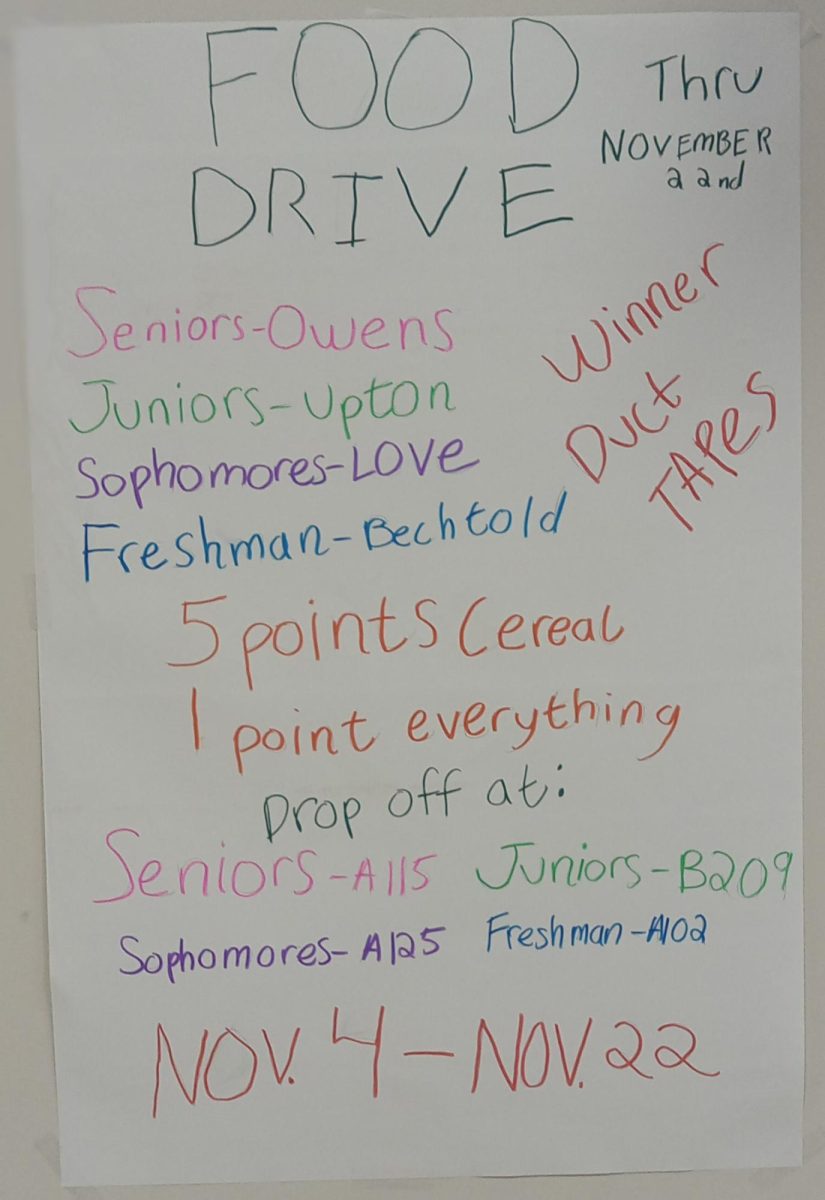 FOOD
DRIVE
Thru
NOVEMBER
22nd
Seniors-Owens
Juniors-Upton
Sophomores-LOVe
Freshman-Bechtold
Winner
Duct
TAPes
5 points Cereal
1 point everything
Drop off at:
Seniors-A115 Juniors-B209
Sophomores-A125 Freshman-A102
NOV. 4-NOV. 22